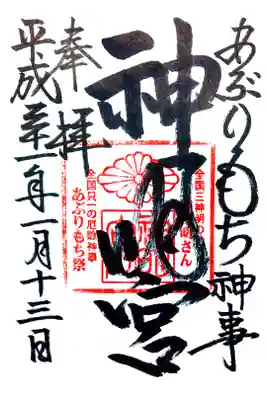 あぶりもち神事
全国三神明の
神明宮
全国只一の厄除神事
あぶりもち祭
奉拝
平成二十一年一月十三日